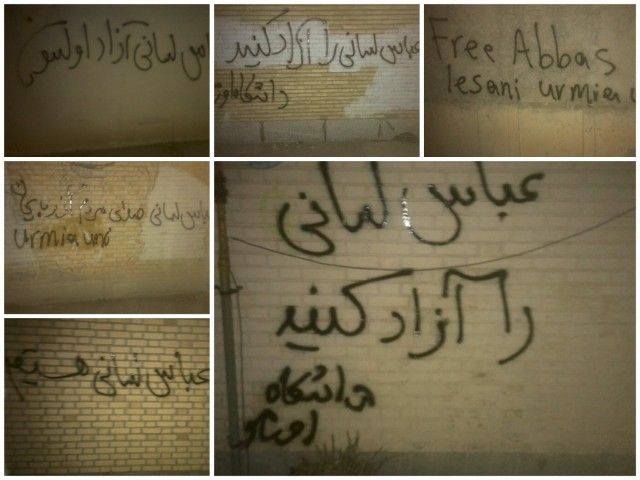 عباس لسانی آزاد اولسون
عباس لسانی را آزاد کنید
دانشگاه اورمیه
Free Abbas
lesani urmia u
عباس لسانی صدای مردم آذربایجان
urmia uni
عباس لسانی
را آزاد کنید
دانشگاه
اورمیه
عباس لسانی هستیم